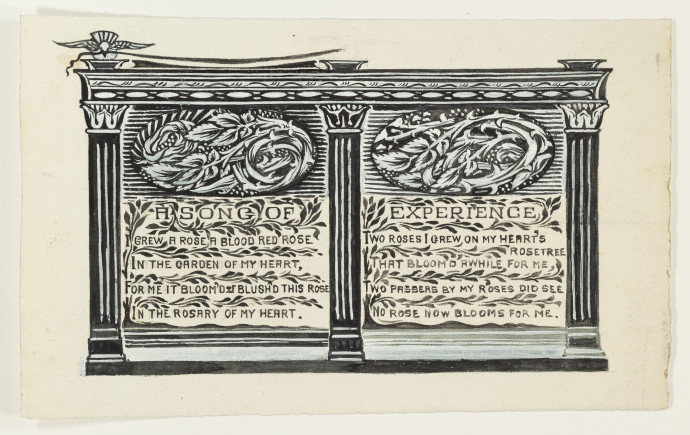 A SONG OF
I GREW A ROSE A BLOOD RED ROSE
IN THE GARDEN OF MY HEART,
FOR ME IT BLOOM'D & BLUSH'D THIS ROSE
IN THE ROSARY OF MY HEART.
EXPERIENCE
TWO ROSES I GREW, ON MY HEART'S
ROSETREE
THAT BLOOM'D AWHILE FOR ME,
TWO PASSERS BY MY ROSES DID SEE
NO ROSE NOW BLOOMS FOR ME.